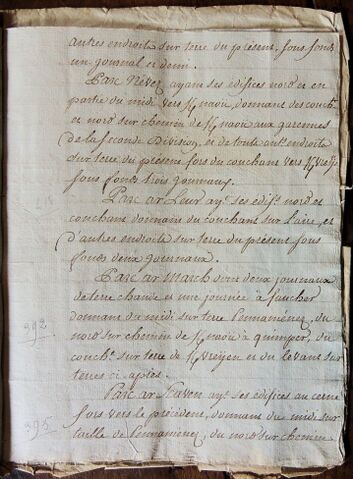 autres endroits sur terre du présent, sous fonds
un journal et demi.
Parc Névez ayant ses édifices nord et en
partie du midi vers donnant des couchant
et nord sur chemin de aux garennes
de la seconde Division, et de tout autre endroits
sur terre du présent fors du couchant vers
sous fonds trois journaux.
Parc ar Leur ayt ses édifs nord et
couchant donnant du couchant sur l'aire, et
d'autres endroits sur terre du présent, sous
fonds deux journaux.
Parc ar March deux journaux
de terre chaude et une journée à faucher
donnant du midi sur terre Pennaménez, du
392
nord sur chemin de à quimper, du
couchl sur terre de et du levant sur
terres ci-après.
Parc ar ayt ses édifices au cerne
395
fors vers le précédent, donnant du midi sur
taille de Pennaménez, du nord sur chemin